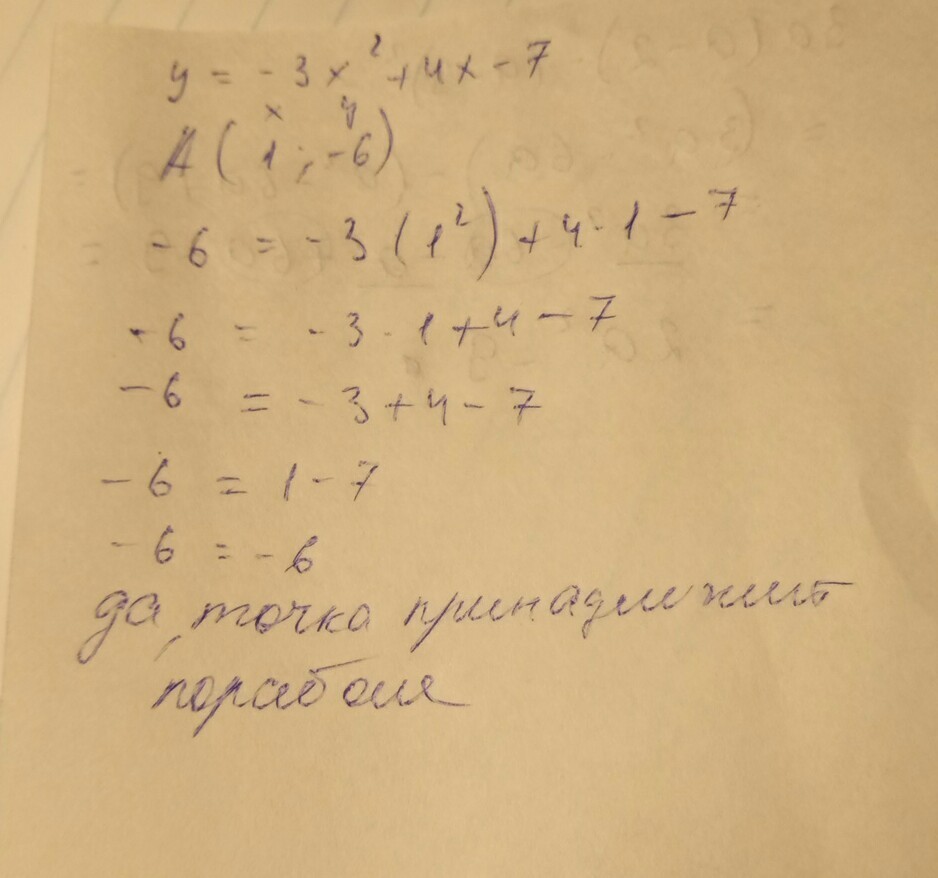 y = -3x² + 4x - 7
x y
A ( 1 ; -6 )
-6 = -3 (1²) + 4 · 1 - 7
-6 = -3 · 1 + 4 - 7
-6 = -3 + 4 - 7
-6 = 1 - 7
-6 = -6
да, точка принадлижит
пораболе